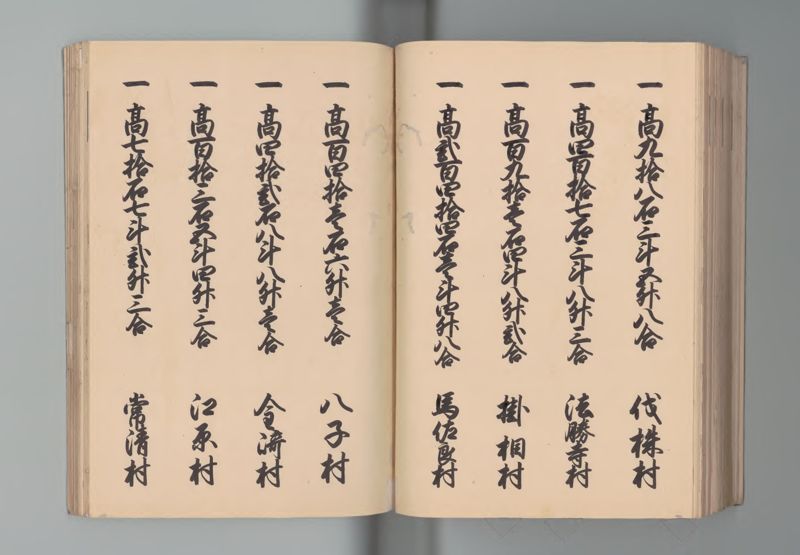 一 高九拾八石三斗五升八合 伐株村
一 高四百拾七石三斗八升三合 法勝寺村
一 高百九拾壱石四斗八升弐合 掛相村
一 高弐百四拾四石壱斗四升八合 馬佐良村
一 高百四拾壱石六升壱合 八子村
一 高四拾弐石八斗八升壱合 金﨑村
一 高百拾三石五斗四升三合 江原村
一 高七拾石七斗弐升三合 常清村